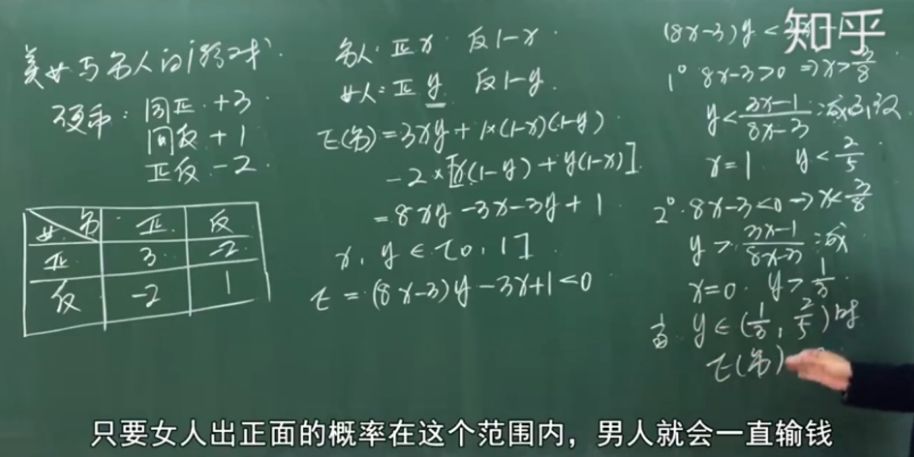 美女与名人的游戏
硬币: 同正 +3
同反 +1
正反 -2
女 名 正 反
正 3 -2
反 -2 1
名人: 正x 反1-x
女人: 正y 反1-y.
E(名)=3xy+1×(1-x)(1-y)
-2×[x(1-y)+y(1-x)]
=8xy-3x-3y+1
x, y∈[0,1]
E=(8x-3)y-3x+1<0
(8x-3)y<
知乎
1° 8x-3>0 ⇒x>3/8
y<(3x-1)/(8x-3):减函数
x=1 y<2/5
2° 8x-3<0→x<3/8
y>(3x-1)/(8x-3):减
x=0. y>1/3.
当 y∈(1/3, 2/5)时
E(名)
只要女人出正面的概率在这个范围内，男人就会一直输钱